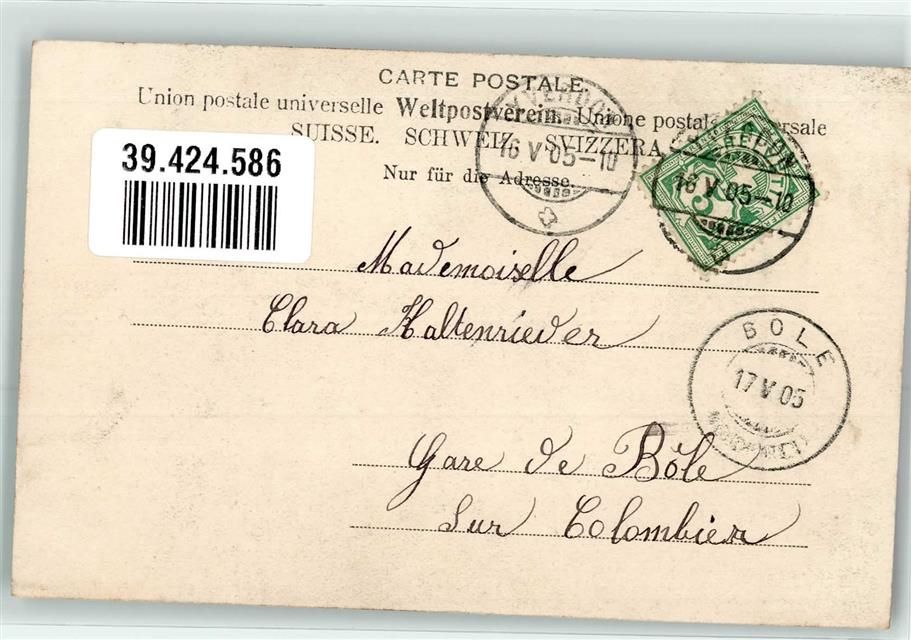 CARTE POSTALE.
Union postale universelle Weltpostverein. Unione postale universale
SUISSE. SCHWEIZ. SVIZZERA.
Nur für die Adresse.
39.424.586
YVERDON
16 V 05–10
16 V 05–10
Mademoiselle
Clara Haltenrieder
BOLE
17 V 05
Gare de Bôle
Sur Colombier